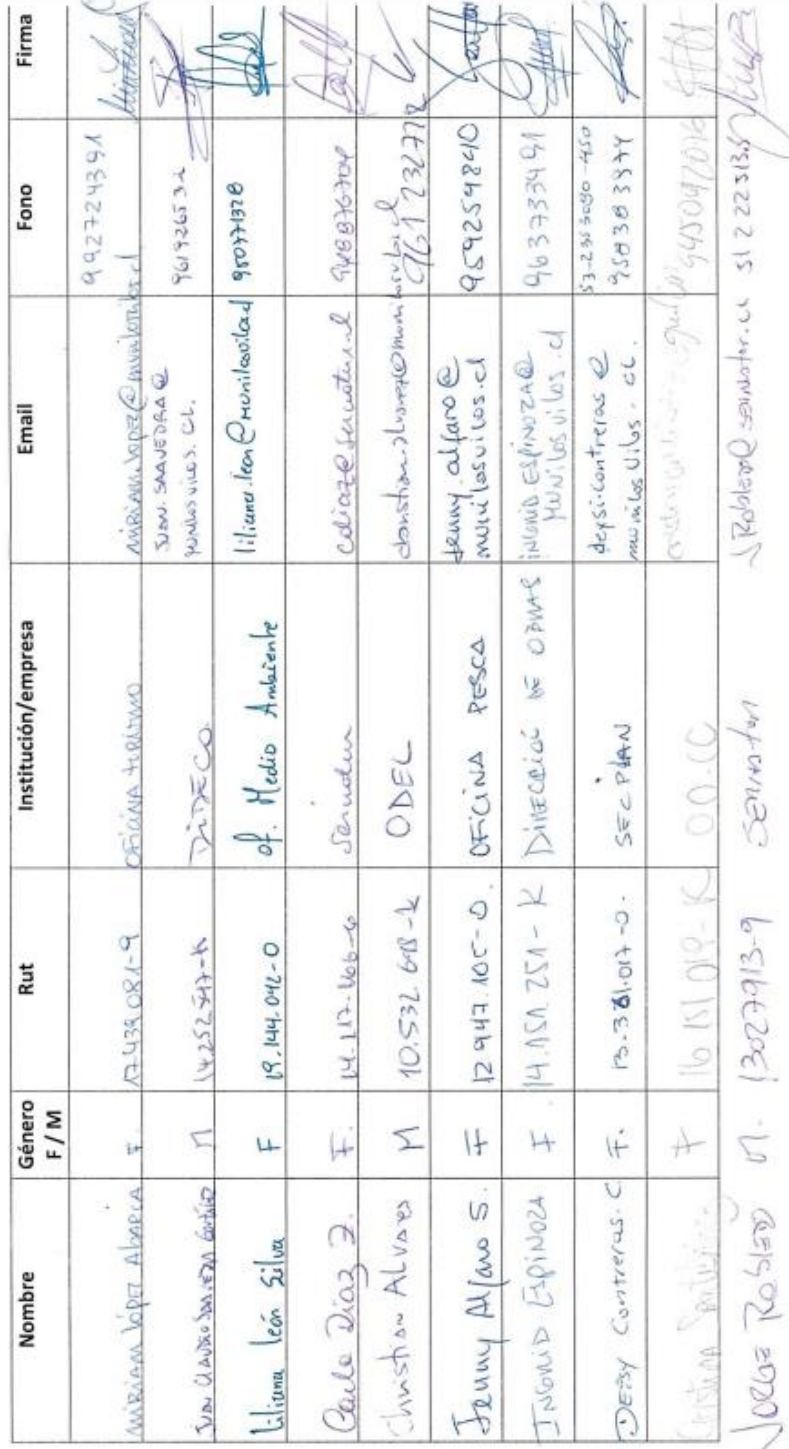 Nombre Género F / M Rut Institución/empresa Email Fono Firma
Miriam López Abarca F. 17.439.081-9 Oficina turismo miriam.lopez@munilosvilos.cl 992724391
Juan Claudio Saavedra M 14252747-K DIDECO Juan.SAAVEDRA@ munilosvilos.CL. 961926532
Liliana león Silva F 19.144.042-0 of. Medio Ambiente liliana.leon@munilosvilos.cl 980771328
Carla Diaz Z. F. cdiaz@sernatur.cl
Christian Alvarez M 10.532.698-K ODEL 961232772
Jenny Alfaro S. F 12947.105-0. OFICINA PESCA Jenny.alfaro@ munilosvilos.cl 959259840
INGRID ESPINOZA F 14.151.251-K Dirección de OBRAS INGRID ESPINOZA@ MUNILOSVILOS.cl 963733491
DEISY Contreras.C F. 13.381.017-0. SECPLAN deysi.contreras@ munilosvilos.cl. 53-2353090-450 958383374
Cristina F 16151019-K OO.CC 945092016
JORGE Robledo M. 13027913-9 sernatur JRobledo@sernatur.cl